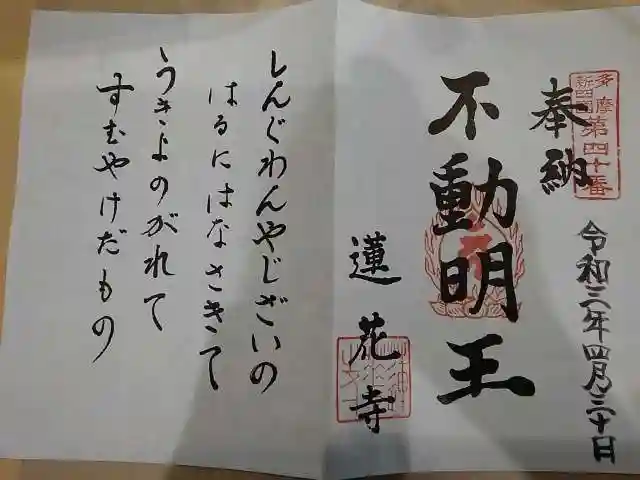 多摩
新四国
第四十番
奉納
令和三年四月三十日
不動明王
蓮花寺
しんぐわんやじざいの
はるにはなさきて
うきよのがれて
すむやけだもの